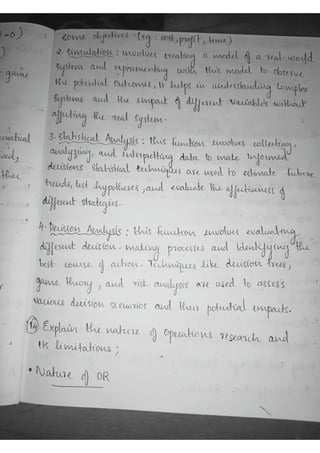 some objectives. (eg: cost, profit, time)
2. Simulation: involves creating a model of a real-world
system and experimenting with this model to observe
the potential outcomes, It helps in understanding complex
systems and the impact of different variables without
affecting the real system.
3. Statistical Analysis: this function involves collecting,
analyzing, and interpretting data to make informed
decisions statistical techniques are used to estimate future
trends, test hypotheses, and evaluate the effectiveness of
different strategies.
4. Decision Analysis: this function involves evaluating
different decision-making processes and identifying the
best course of action. Techniques like decision trees,
game theory, and risk analysis are used to assess
various decision scenarios and their potential impacts.
14 Explain the nature of Operations research and
its limitations;
• Nature of OR
=0)
game
matical